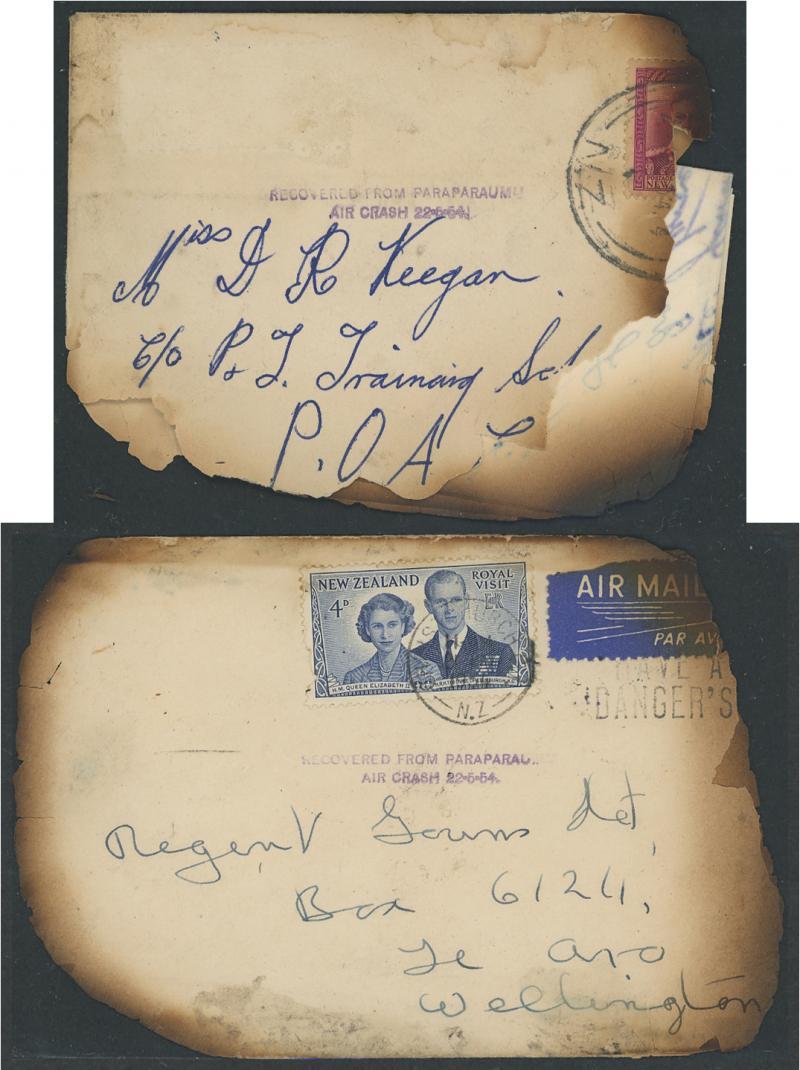 POSTAGE
NEW
NZ
RECOVERED FROM PARAPARAUMU
AIR CRASH 22-5-54.
Miss D R Keegan.
c/o P & T. Training
P.O A
NEW ZEALAND
ROYAL
VISIT
4D
ER
H.M. QUEEN ELIZABETH II
N.Z
AIR MAIL
PAR AV
HAVE A
DANGER'S
RECOVERED FROM PARAPARAU
AIR CRASH 22-5-54.
Regent Gowns Ltd,
Box 6124,
Te Aro
Wellington